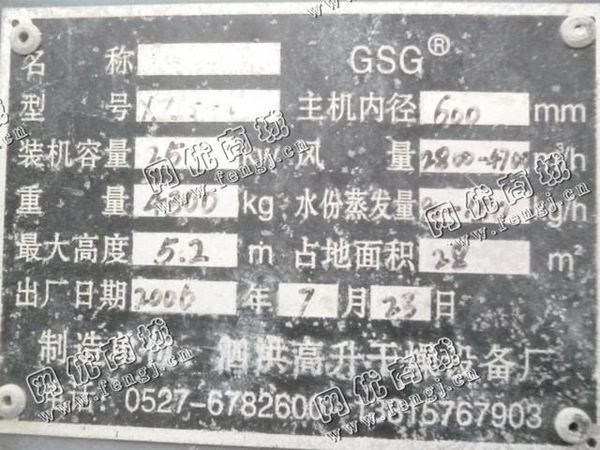 GSG®
名 称
型 号 主机内径 600 mm
装机容量 25 kw 风 量 2800-4700 m³/h
重 量 kg 水份蒸发量 kg/h
最大高度 5.2 m 占地面积 28 m²
出厂日期 2006 年 7 月 23 日
制造 泗洪高升干燥设备厂
电话: 0527-6782600 13815767903
网优商城
www.fengj.cn
网优商城
www.fengj.cn
网优商城
www.fengj.cn
网优商城
www.fengj.cn